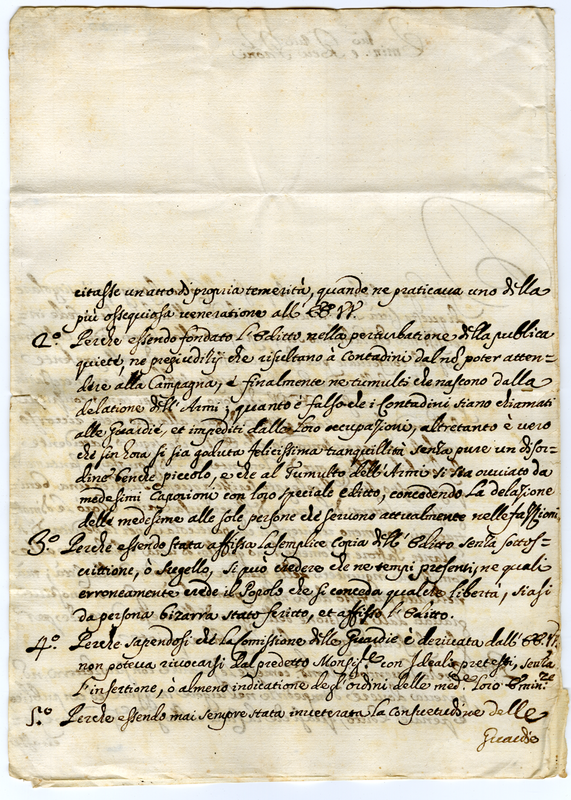 citasse un atto di propria temerità, quando ne praticaua uno della
più ossequiosa veneratione all' EE. VV.
2.º Perche essendo fondato l'Editto nella perturbatione della publica
quiete, ne pregiuditij che risultano à Contadini dal nō poter atten-
dere alla Campagna, e finalmente ne tumulti che nascono dalla
delatione dell'Armi; quanto è falso che i Contadini siano chiamati
alle Guardie, et impediti dalle loro occupationi, altretanto è vero
che fin hora si sia goduta felicissima tranquillità senza pure un disor-
dine benche piccolo, e che al Tumulto dell'Armi si sia ouuiato da
medesimi Caporioni con loro speciale editto, concedendo la delazione
delle medesime alle sole persone che seruono attualmente nelle fazzioni
3.º Perche essendo stata affissa la semplice Copia dell'Editto senza sottos-
crittione, ò sugello, si puo credere che ne tempi presenti, ne quali
erroneamente crede il Popolo che si conceda qualche libertà, sia si
da persona bizarra stato scritto, et affisso l'Editto.
4.º Perche sapendosi che la Comissione delle Guardie è deriuata dall'EE. VV.
non poteua riuocarsi dal predetto Monsig.re con ideali pretesti, senza
l'insertione, ò almeno indicatione degl'ordini delle med.e loro Emin.ze
5.º Perche essendo mai sempre stata inueterata la Consuetudine delle
Guardie